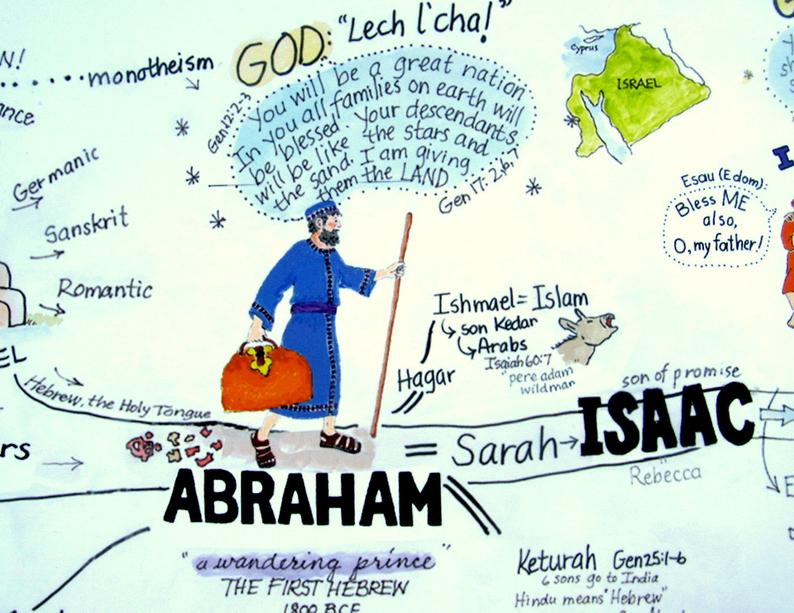 N!
monotheism
GOD: "Lech l'cha!"
Gen 12:2-3
You will be a great nation
In you all families on earth will
be blessed. Your descendants
will be like the stars and
the sand. I am giving
them the LAND
Gen 17:2,6,7
Cyprus
ISRAEL
ance
Germanic
Sanskrit
Romantic
EL
Hebrew, the Holy Tongue
rs
Esau (Edom):
Bless ME
also,
O, my father!
Ishmael = Islam
son Kedar
Arabs
Isaiah 60:7
"pere adam
wildman
Hagar
son of promise
= Sarah → ISAAC
Rebecca
ABRAHAM
"a wandering prince"
THE FIRST HEBREW
1800 BCE
Keturah Gen 25:1-6
6 sons go to India
Hindu means "Hebrew"